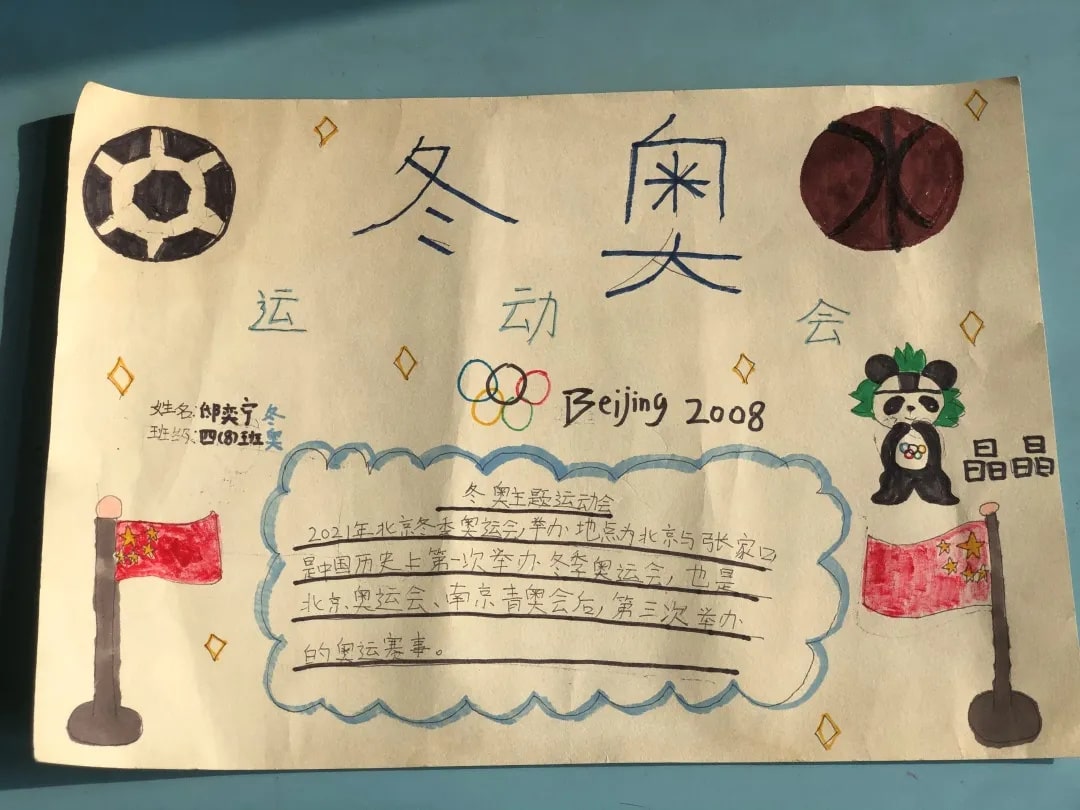 冬奥
运动会
Beijing 2008
姓名:邸奕宁
班级:四(8)班
冬奥
晶晶
冬奥主题运动会
2021年北京冬季奥运会,举办地点为北京与张家口
是中国历史上第一次举办冬季奥运会,也是
北京奥运会、南京青奥会后,第三次举办
的奥运赛事。